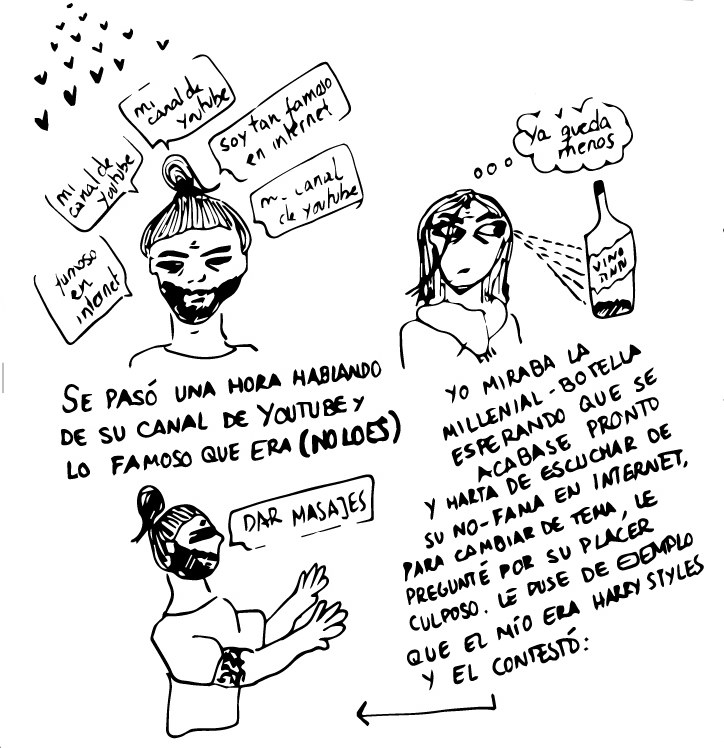 mi
canal de
youtube
soy tan famoso
en internet
mi
canal de
youtube
mi canal
de youtube
famoso
en
internet
SE PASÓ UNA HORA HABLANDO
DE SU CANAL DE YOUTUBE Y
LO FAMOSO QUE ERA (NO LO ES)
Ya queda
menos
VINO
YO MIRABA LA
MILLENIAL-BOTELLA
ESPERANDO QUE SE
ACABASE PRONTO
Y HARTA DE ESCUCHAR DE
SU NO-FAMA EN INTERNET,
PARA CAMBIAR DE TEMA, LE
PREGUNTÉ POR SU PLACER
CULPOSO. LE PUSE DE EJEMPLO
QUE EL MÍO ERA HARRY STYLES
Y EL CONTESTÓ:
DAR MASAJES